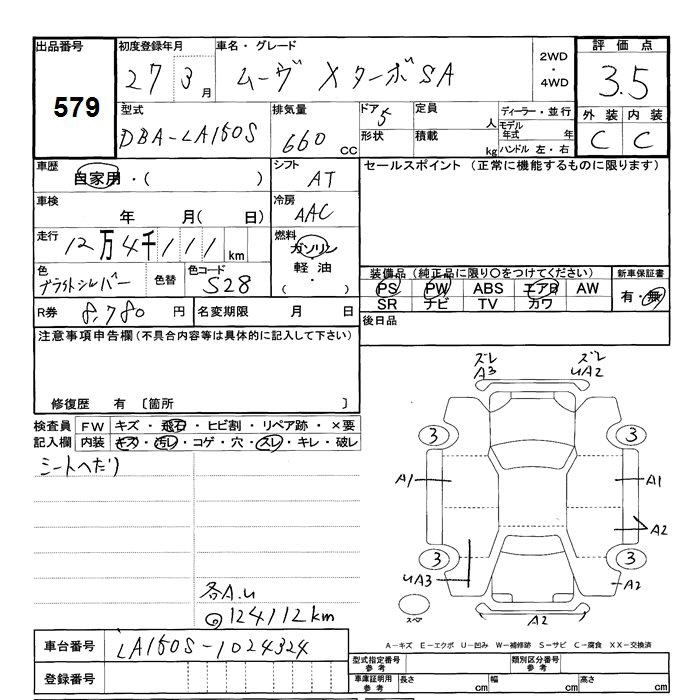 出品番号 初度登録年月 車名・グレード 2WD ・ 4WD 評価点
579 27 3月 ムーヴ XターボSA 3.5
型式 排気量 ドア 定員 人 ディーラー・並行 外装 内装
DBA-LA150S 660cc 5 形状 積載 kg モデル年式 年 ハンドル 左・右 C C
車歴 自家用・( ) シフト AT セールスポイント (正常に機能するものに限ります)
車検 年 月( 日) 冷房 AAC
走行 12万4千111km 燃料 ガソリン・軽油・( )
色 ブライトシルバー 色替 色コード S28 装備品(純正品に限り○をつけてください) 新車保証書
PS PW ABS エアB AW 有・無
SR ナビ TV カワ
R券 8,780円 名変期限 月 日 後日品
注意事項申告欄(不具合内容等は具体的に記入して下さい)
修復歴 有 〔箇所 〕
検査員記入欄 FW キズ・飛石・ヒビ割・リペア跡・×要
内装 キズ・汚レ・コゲ・穴・スレ・キレ・破レ
シートへたり
各A.U
124112km
ズレ A3 ズレ UA2
3 3
A1 A1
A2
3 3
UA3 A2
スペア A2
A-キズ E-エクボ U-凹み W-補修跡 S-サビ C-腐食 XX-交換済
車台番号 LA150S-1024324
登録番号
型式指定番号 参考 類別区分番号 参考
車庫証明用 参考 長さ cm 幅 cm 高さ cm